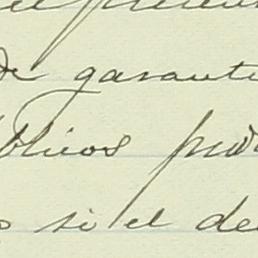 de garanti
blicos pud
si el de